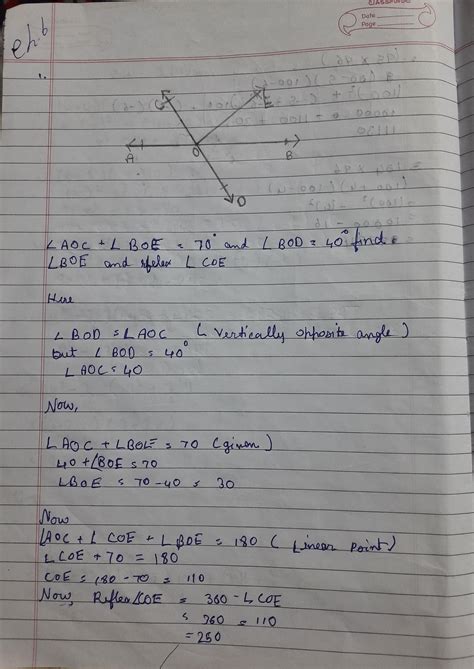 CLASSMATE
Date
Page
ch 6
1.
C
E
A
O
B
D
∠AOC + ∠BOE = 70° and ∠BOD = 40° find
∠BOE and reflex ∠COE
Here
∠BOD = ∠AOC (Vertically opposite angle)
but ∠BOD = 40°
∠AOC = 40
Now,
∠AOC + ∠BOE = 70 (given)
40 + ∠BOE = 70
∠BOE = 70 - 40 = 30
Now
∠AOC + ∠COE + ∠BOE = 180 (Linear Point)
∠COE + 70 = 180
COE = 180 - 70 = 110
Now, Reflex ∠COE = 360 - ∠COE
= 360 = 110
= 250